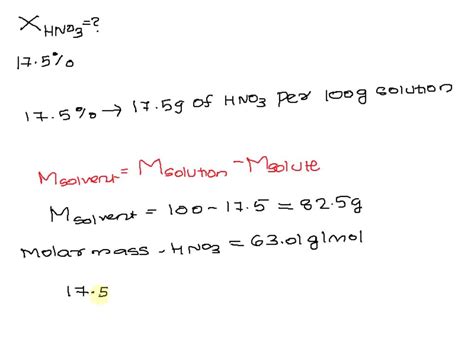 X HNO3 = ?
17.5%
17.5% → 17.5g of HNO3 per 100g solution
Msolvent = Msolution - Msolute
Msolvent = 100 - 17.5 = 82.5g
Molar mass - HNO3 = 63.01 g|mol
17.5